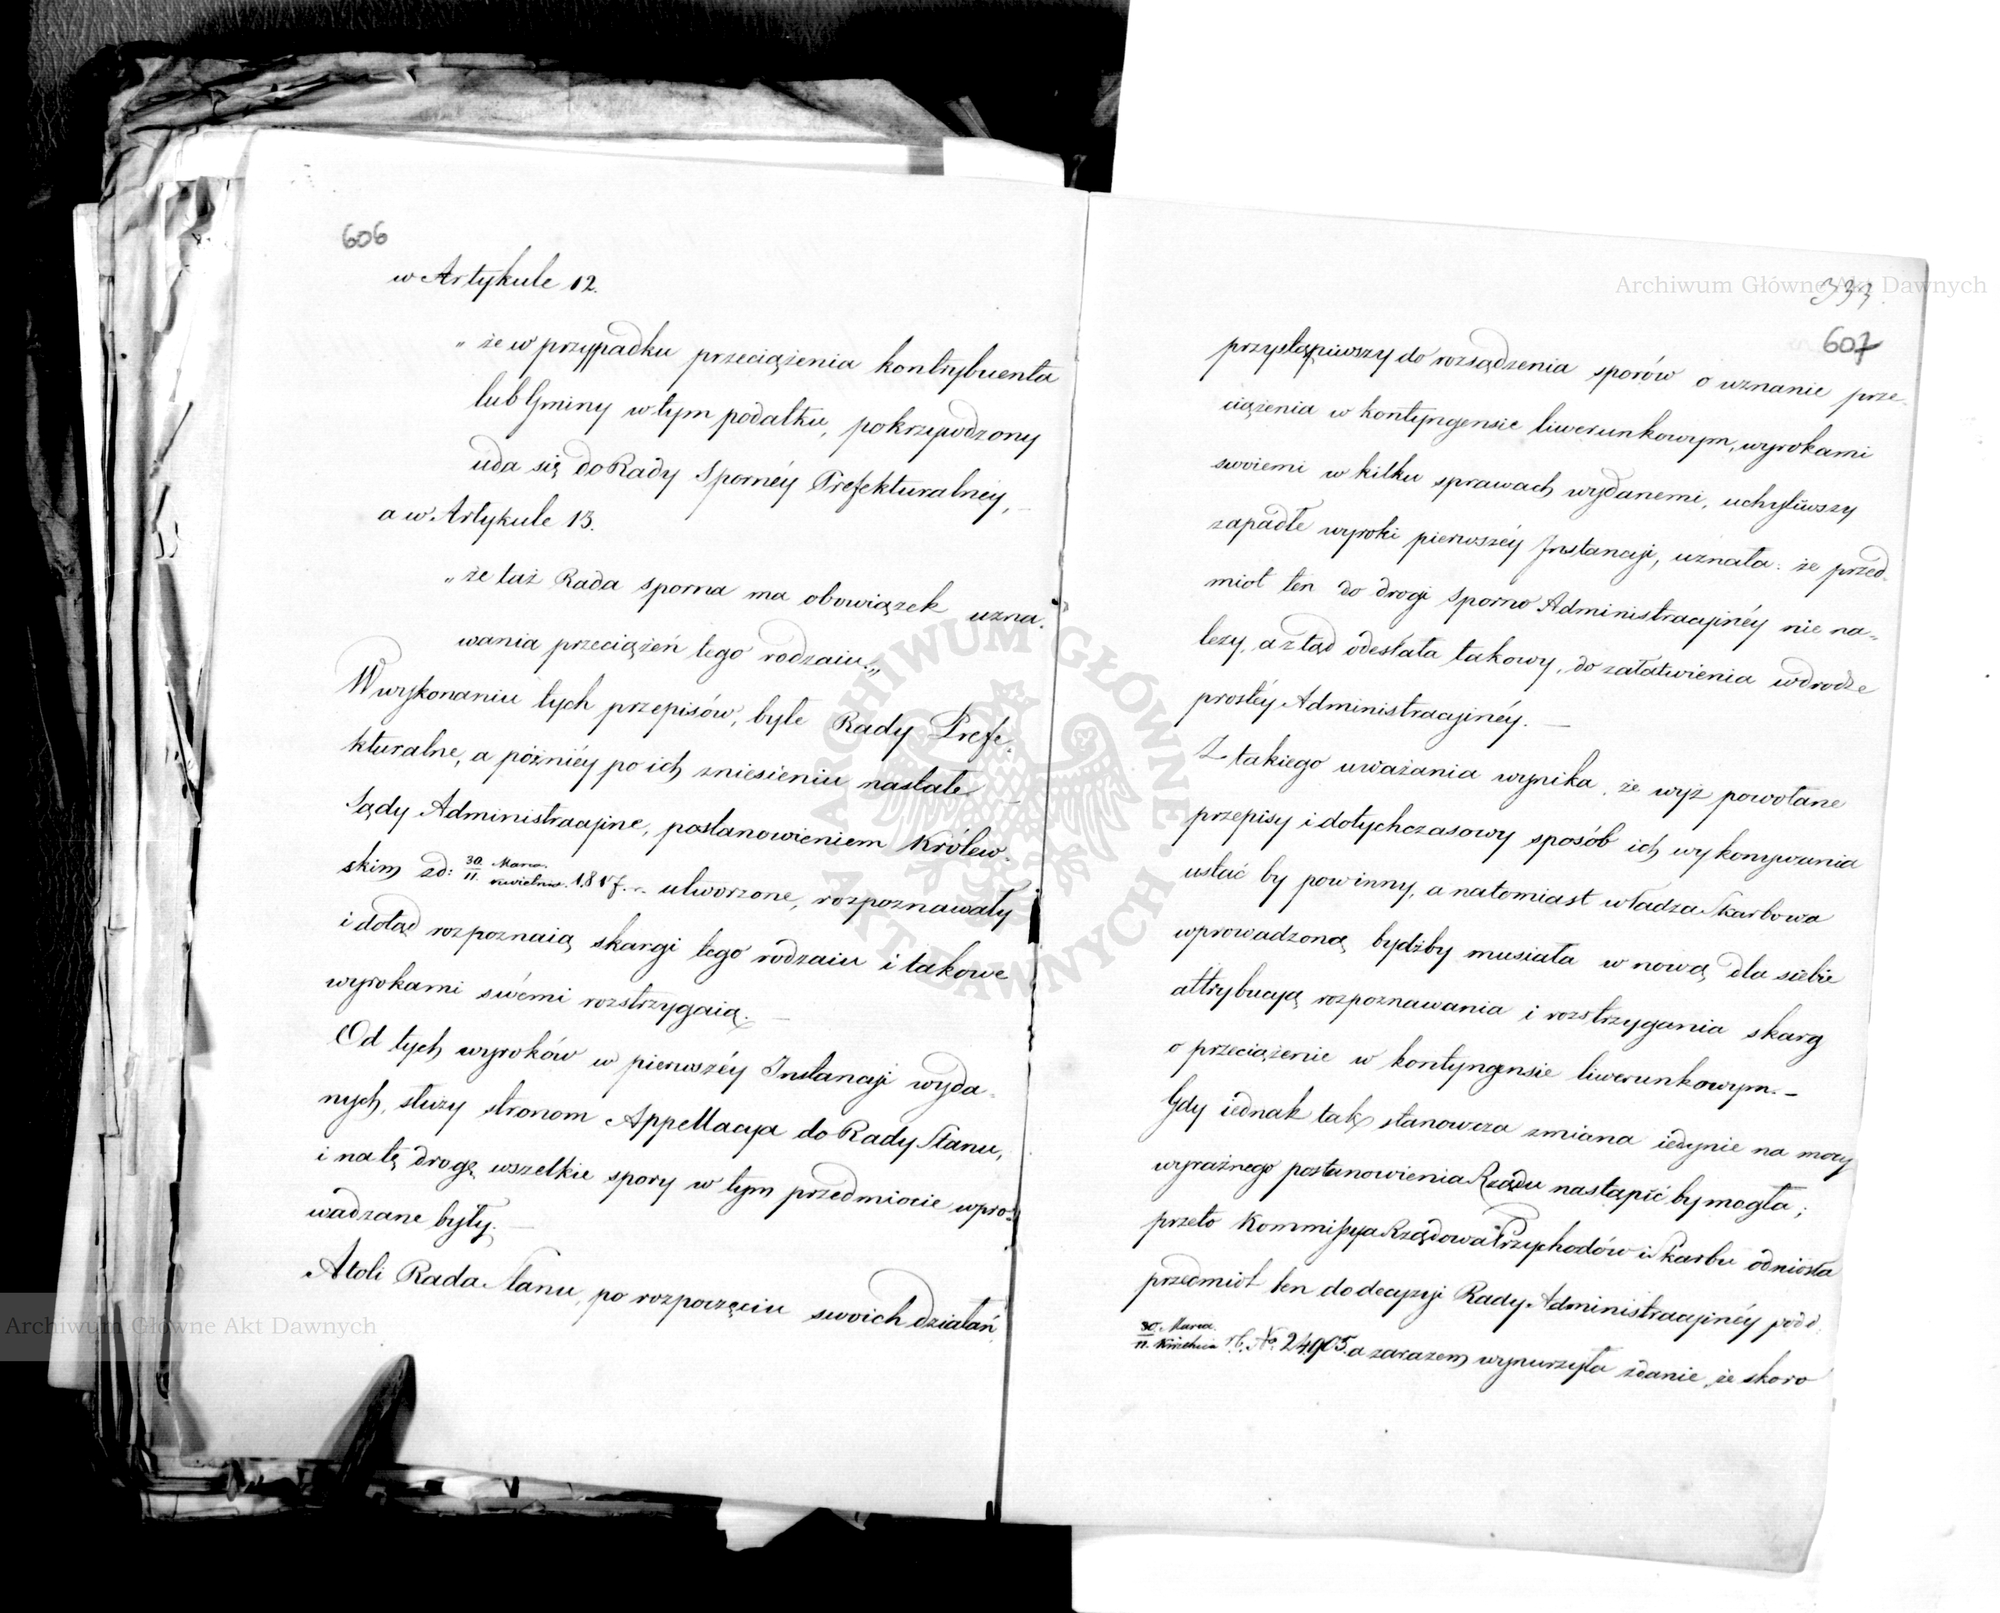 606
w Artykule 12.
„ że w przypadku przeciążenia kontrybuenta
lub Gminy w tym podatku, pokrzywdzony
uda się do Rady Spornéy Prefekturalnéy, –
a w Artykule 13.
„ że taż Rada sporna ma obowiązek uzna-
wania przeciążeń tego rodzaiu.„
W wykonaniu tych przepisów, byłe Rady Prefe-
kturalne, a późniéy po ich zniesieniu nastałe
Sądy Administracyine, postanowieniem Królew-
skim zd: 30. Marca / 11. Kwietnia utworzone, rozpoznawały
i dotąd rozpoznaią skargi tego rodzaiu i takowe
wyrokami swémi rozstrzygaią. –
Od tych wyroków w pierwszéy Instancyi wyda-
nych, służy stronom Appellacya do Rady Stanu,
i na tę drogę wszelkie spory w tym przedmiocie wpro-
wadzane były. –
Atoli Rada Stanu, po rozpoczęciu swoich działań
333.
607
przystąpiwszy do rozsądzenia sporów o uznanie prze-
ciążenia w kontyngensie liwerunkowym, wyrokami
swoiemi w kilku sprawach wydanemi, uchyliwszy
zapadłe wyroki pierwszéy Instancyi, uznała: że przed-
miot ten do drogi Sporno Administracyinéy nie na-
leży, a ztąd odesłała takowy, do załatwienia w drodze
prostéy Administracyinéy. –
Z takiego uważania wynika, że wyż powołane
przepisy i dotychczasowy sposób ich wykonywania
ustać by powinny, a natomiast władza Skarbowa
wprowadzoną bydźby musiała w nową dla siebie
attrybucyą rozpoznawania i rozstrzygania skarg
o przeciążenie w kontyngensie liwerunkowym. –
Gdy iednak tak stanowcza zmiana iedynie na mocy
wyraźnego postanowienia Rządu nastąpić by mogła;
przeto Kommissya Rządowa Przychodów i Skarbu odniosła
przedmiot ten do decyzyi Rady Administracyinéy pod d:
30. Marca / 11. Kwietnia r. b. No 24,905. a zarazem wynurzyła zdanie, że skoro
Archiwum Główne Akt Dawnych
Archiwum Główne Akt Dawnych
ARCHIWUM GŁÓWNE AKT DAWNYCH